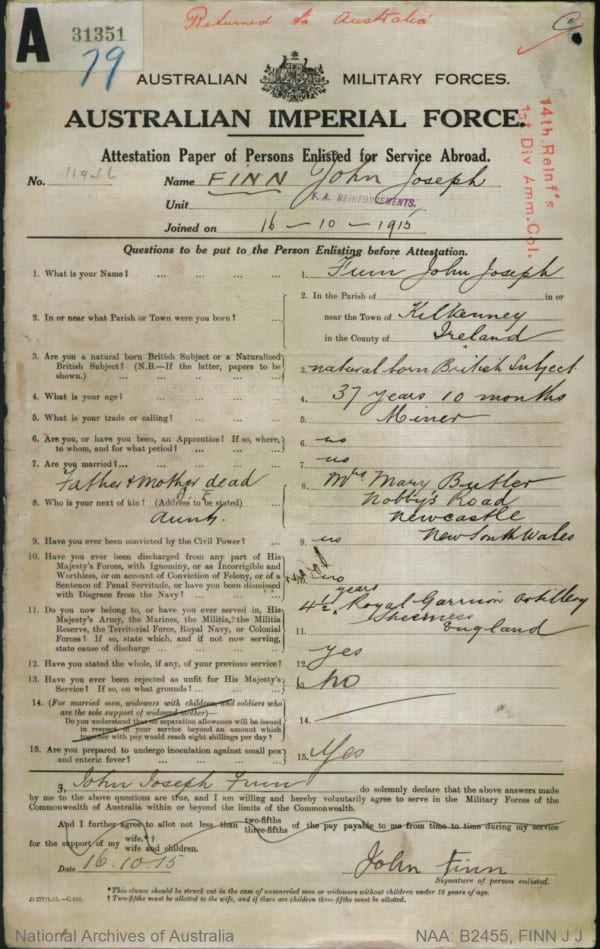 Returned to Australia
A
31351
79
AUSTRALIAN MILITARY FORCES.
AUSTRALIAN IMPERIAL FORCE.
14th Reinf's
1st Div Amm. Col.
Attestation Paper of Persons Enlisted for Service Abroad.
No. Name FINN John Joseph
Unit F. A. REINFORCEMENTS.
Joined on 16 - 10 - 1915
Questions to be put to the Person Enlisting before Attestation.
1. What is your Name? ... ... ... ... 1. Finn John Joseph
2. In or near what Parish or Town were you born? ... 2. In the Parish of in or
near the Town of Kilkenney
in the County of Ireland
3. Are you a natural born British Subject or a Naturalized British Subject? (N.B.—If the latter, papers to be shown.) ... 3. natural born British Subject
4. What is your age? ... ... ... ... 4. 37 years 10 months
5. What is your trade or calling? ... ... ... 5. Miner
6. Are you, or have you been, an Apprentice? If so, where, to whom, and for what period? ... ... ... 6. no
7. Are you married? ... ... ... ... 7. no
Father & Mother dead
8. Who is your next of kin? (Address to be stated) 8. Mrs Mary Butler
aunt. Nobby's Road
Newcastle
New South Wales
9. Have you ever been convicted by the Civil Power? ... 9. no
10. Have you ever been discharged from any part of His Majesty's Forces, with Ignominy, or as Incorrigible and Worthless, or on account of Conviction of Felony, or of a Sentence of Penal Servitude, or have you been dismissed with Disgrace from the Navy? ... ... 10. no
11. Do you now belong to, or have you ever served in, His Majesty's Army, the Marines, the Militia, the Militia Reserve, the Territorial Force, Royal Navy, or Colonial Forces? If so, state which, and if not now serving, state cause of discharge ... ... ... 11. 4½ years Royal Garrison Artillery
Sheerness
England
12. Have you stated the whole, if any, of your previous service? 12. yes
13. Have you ever been rejected as unfit for His Majesty's Service? If so, on what grounds? ... ... 13. No
14. (For married men, widowers with children, and soldiers who are the sole support of widowed mother)—
Do you understand that no separation allowance will be issued in respect of your service beyond an amount which together with pay would reach eight shillings per day? ... 14.
15. Are you prepared to undergo inoculation against small pox and enteric fever? ... ... ... 15. Yes
I, John Joseph Finn do solemnly declare that the above answers made
by me to the above questions are true, and I am willing and hereby voluntarily agree to serve in the Military Forces of the
Commonwealth of Australia within or beyond the limits of the Commonwealth.
And I further agree to allot not less than two-fifths three-fifths of the pay payable to me from time to time during my service
for the support of my wife.* † wife and children.
Date 16.10.15 John Finn
Signature of person enlisted.
* This clause should be struck out in the case of unmarried men or widowers without children under 18 years of age.
† Two-fifths must be allotted to the wife, and if there are children three-fifths must be allotted.
National Archives of Australia NAA: B2455, FINN J J